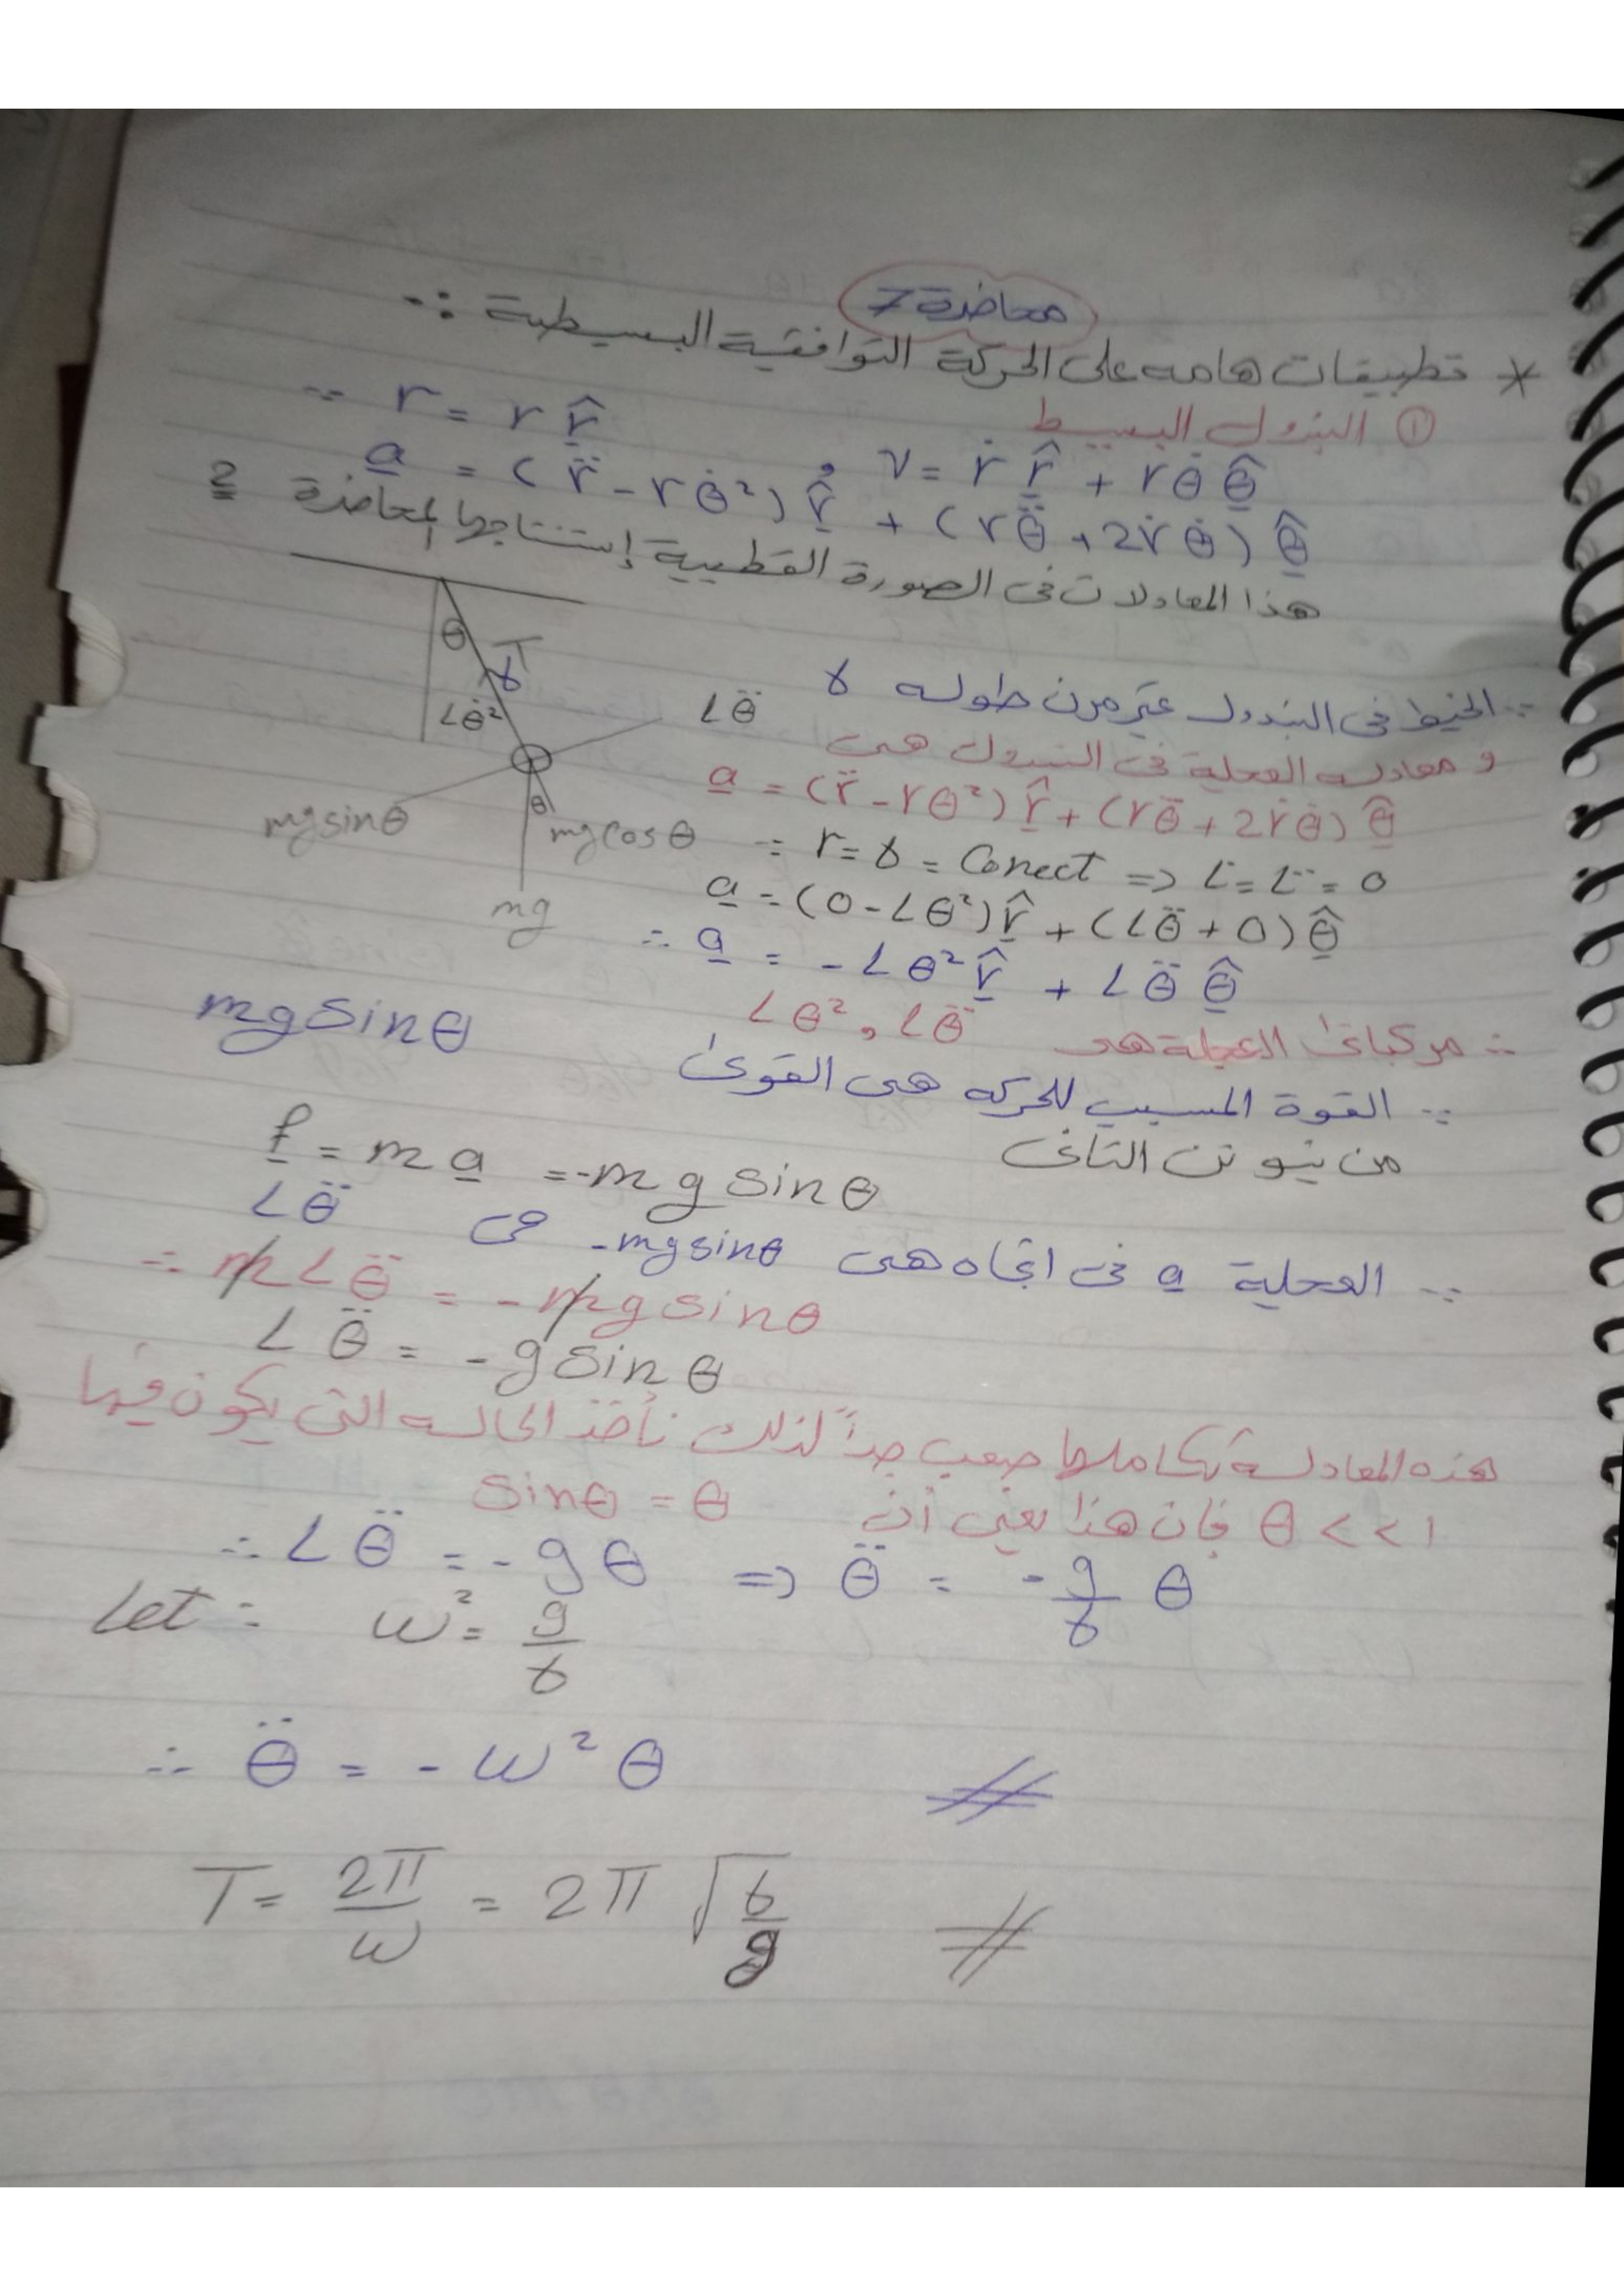 محاضرة 7
* تطبيقات هامه على الحركة التوافقية البسيطة :-
① البندول البسيط
∵ r = r r̂ , v = ṙ r̂ + rθ̇ θ̂
a = (r̈ - rθ̇²) r̂ + (rθ̈ + 2ṙθ̇) θ̂
هذا المعادلات فى الصورة القطبية إستنتاجها لمحاضرة 2
θ
T
ℓ
Lθ̇²
Lθ̈
θ
mg sinθ
mg cosθ
mg
∵ الخيط فى البندول غير مرن طوله ℓ
و معادله العجلية فى البندول هى
a = (r̈ - rθ²) r̂ + (rθ̈ + 2ṙθ̇) θ̂
∵ r = ℓ = Conect => L̇ = L̈ = 0
a = (0 - Lθ²) r̂ + (Lθ̈ + 0) θ̂
∴ a = - Lθ² r̂ + Lθ̈ θ̂
∴ مركباتى العجلة هى Lθ² , Lθ̈
∵ القوة المسبب للحركه هى القوى mg sinθ
من نيوتن التانى
f = m a = -m g sinθ
∵ العجلية a فى اتجاه هى -mg sinθ هى Lθ̈
∴ m L θ̈ = - m g sinθ
L θ̈ = - g sin θ
هذه المعادلة تكاملها صعب جداً لذلك نأخذ الحاله التى يكون فيها
θ << 1 فإن هذا يعنى أن sinθ = θ
∴ L θ̈ = - g θ => θ̈ = - g/ℓ θ
Let : ω² = g/ℓ
∴ θ̈ = - ω² θ
T = 2π/ω = 2π √ℓ/g